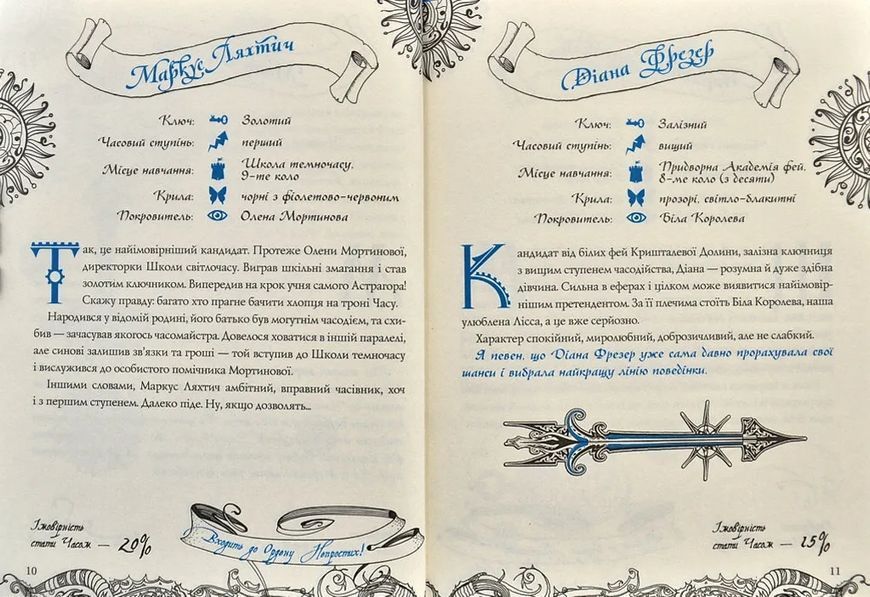 Маркус Ляхтич
Ключ: Золотий
Часовий ступінь: перший
Місце навчання: Школа темночасу,
9-те коло
Крила: чорні з фіолетово-червоним
Покровитель: Олена Мортинова
Так, це найімовірніший кандидат. Протеже Олени Мортинової,
директорки Школи світлочасу. Виграв шкільні змагання і став
золотим ключником. Випередив на крок учня самого Астрагора!
Скажу правду: багато хто прагне бачити хлопця на троні Часу.
Народився у відомій родині, його батько був могутнім часодієм, та схи-
бив — зачасував якогось часомайстра. Довелося ховатися в іншій паралелі,
але синові залишив зв'язки та гроші — той вступив до Школи темночасу
і вислужився до особистого помічника Мортинової.
Іншими словами, Маркус Ляхтич амбітний, вправний часівник, хоч
і з першим ступенем. Далеко піде. Ну, якщо дозволять...
Імовірність
стати Часом — 20%
Входить до Ордену Непростих!
10
Діана Фрезер
Ключ: Залізний
Часовий ступінь: вищий
Місце навчання: Придворна Академія фей,
8-ме коло (з десяти)
Крила: прозорі, світло-блакитні
Покровитель: Біла Королева
Кандидат від білих фей Кришталевої Долини, залізна ключниця
з вищим ступенем часодійства, Діана — розумна й дуже здібна
дівчина. Сильна в еферах і цілком може виявитися наймовір-
нішим претендентом. За її плечима стоїть Біла Королева, наша
улюблена Лісса, а це вже серйозно.
Характер спокійний, миролюбний, доброзичливий, але не слабкий.
Я певен, що Діана Фрезер уже сама давно прорахувала свої
шанси і вибрала найкращу лінію поведінки.
Імовірність
стати Часом — 15%
11